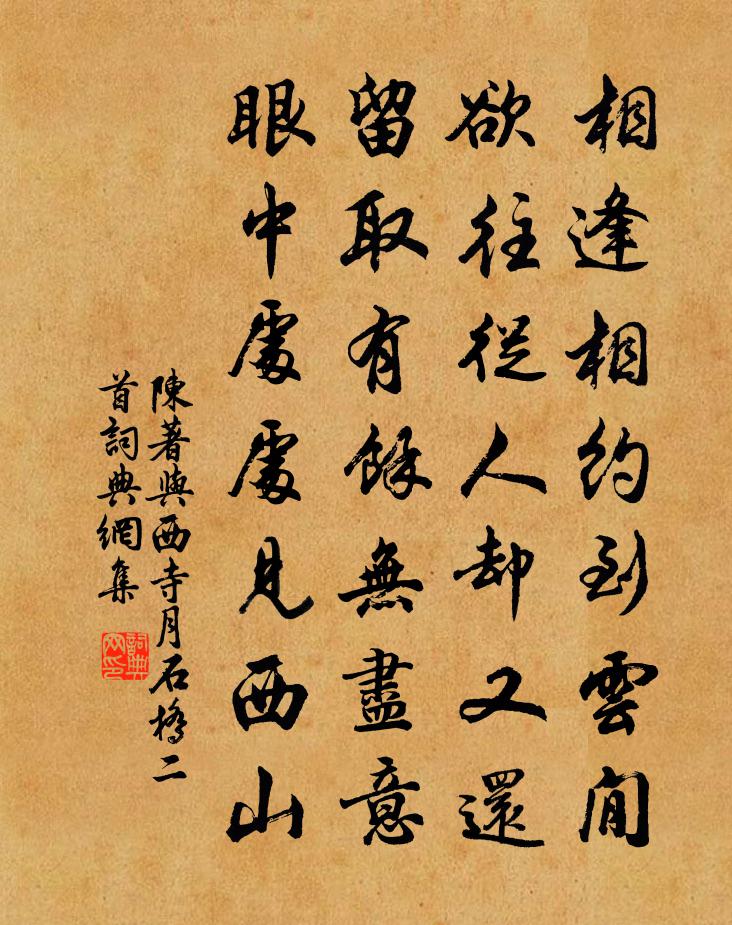 相逢相約到雲閒
欲往從人却又還
留取有餘無盡意
眼中處處見西山
陳著與西寺月石橋二
首詞典網集
詞典网印